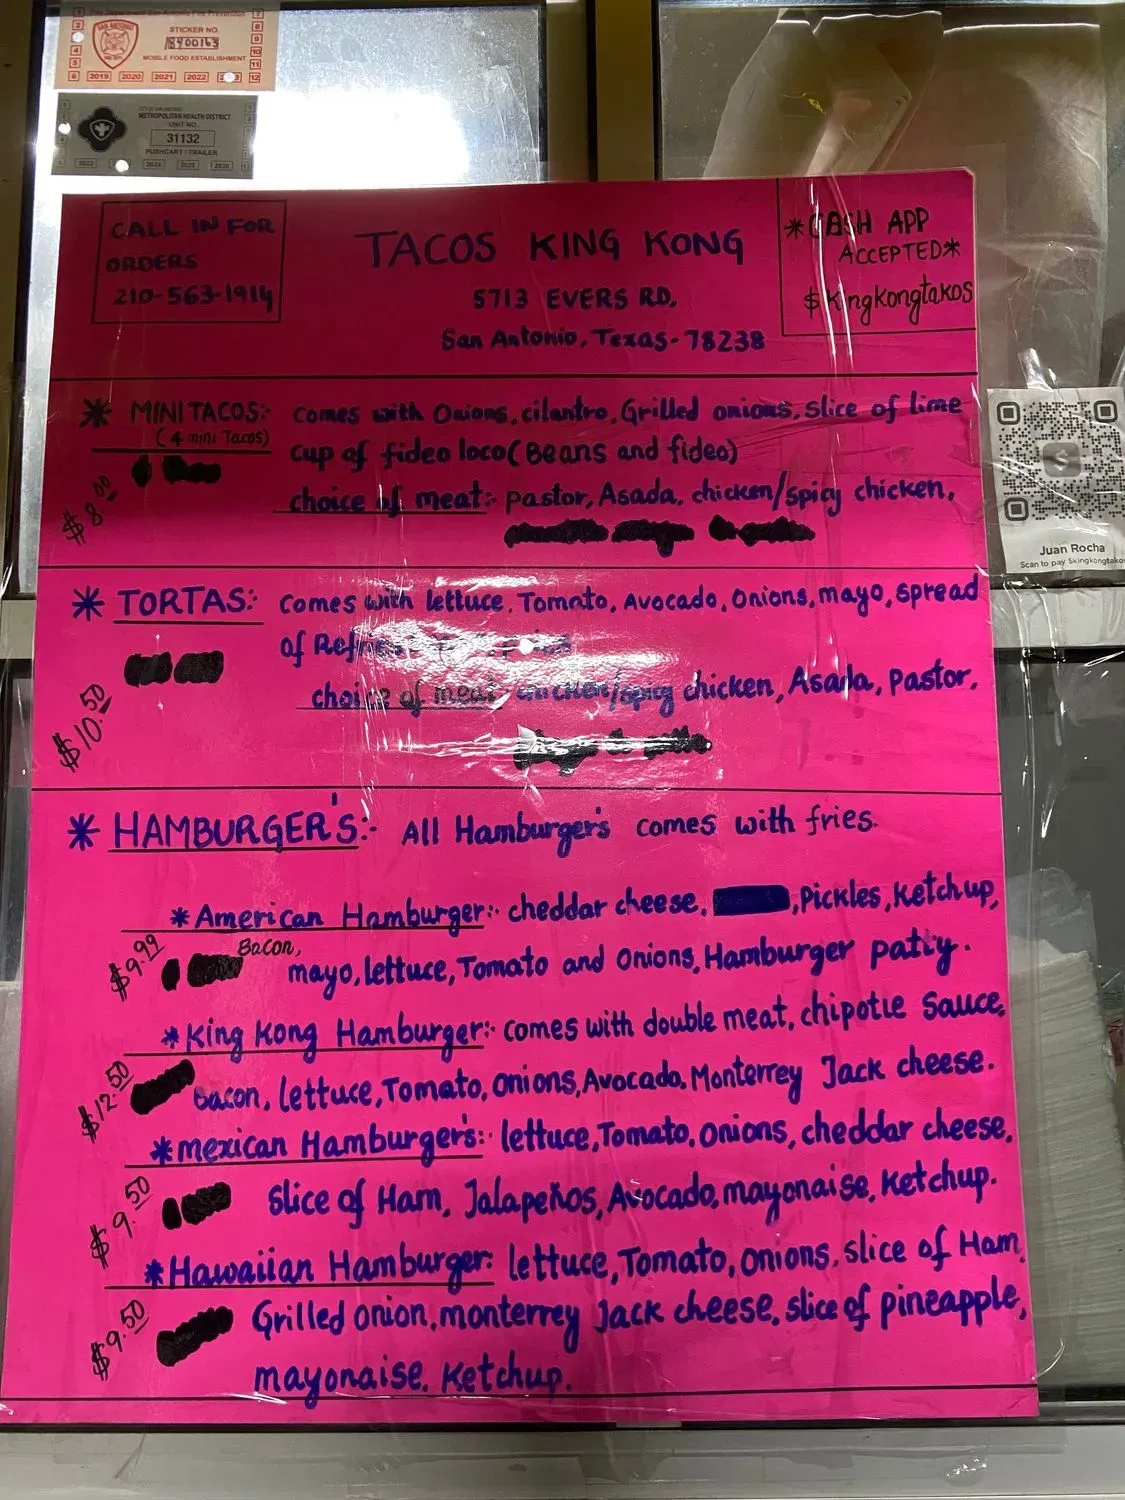 San Antonio Fire Prevention
SAN ANTONIO
STICKER NO.
18400163
MOBILE FOOD ESTABLISHMENT
2019 2020 2021 2022
METROPOLITAN HEALTH DISTRICT
UNIT NO.
31132
PUSHCART / TRAILER
CALL IN FOR
ORDERS
210-563-1914
TACOS KING KONG
5713 EVERS RD.
San Antonio, Texas- 78238
*CASH APP
ACCEPTED*
$kingkongtakos
* MINI TACOS:- comes with Onions, cilantro, Grilled onions, slice of lime
(4 mini Tacos)
cup of fideo loco (Beans and fideo)
$8.00
choice of meat:- pastor, Asada, chicken/spicy chicken,
Juan Rocha
Scan to pay $kingkongtakos
* TORTAS:- comes with lettuce, Tomato, Avocado, Onions, mayo, spread
of
$10.50
choice of meat chicken/spicy chicken, Asada, Pastor.
* HAMBURGER'S:- All Hamburger's comes with fries.
*American Hamburger:- cheddar cheese, , Pickles, Ketchup,
$9.99
Bacon,
mayo, lettuce, Tomato and onions, Hamburger patty.
*King Kong Hamburger:- comes with double meat, chipotle sauce,
$12.50
Bacon, lettuce, Tomato, onions, Avocado, Monterrey Jack cheese.
*mexican Hamburger's:- lettuce, Tomato, onions, cheddar cheese,
$9.50
slice of Ham, Jalapeños, Avocado, mayonaise, Ketchup.
*Hawaiian Hamburger: lettuce, Tomato, onions, slice of Ham,
$9.50
Grilled onion, monterrey Jack cheese, slice of pineapple,
mayonaise, Ketchup.